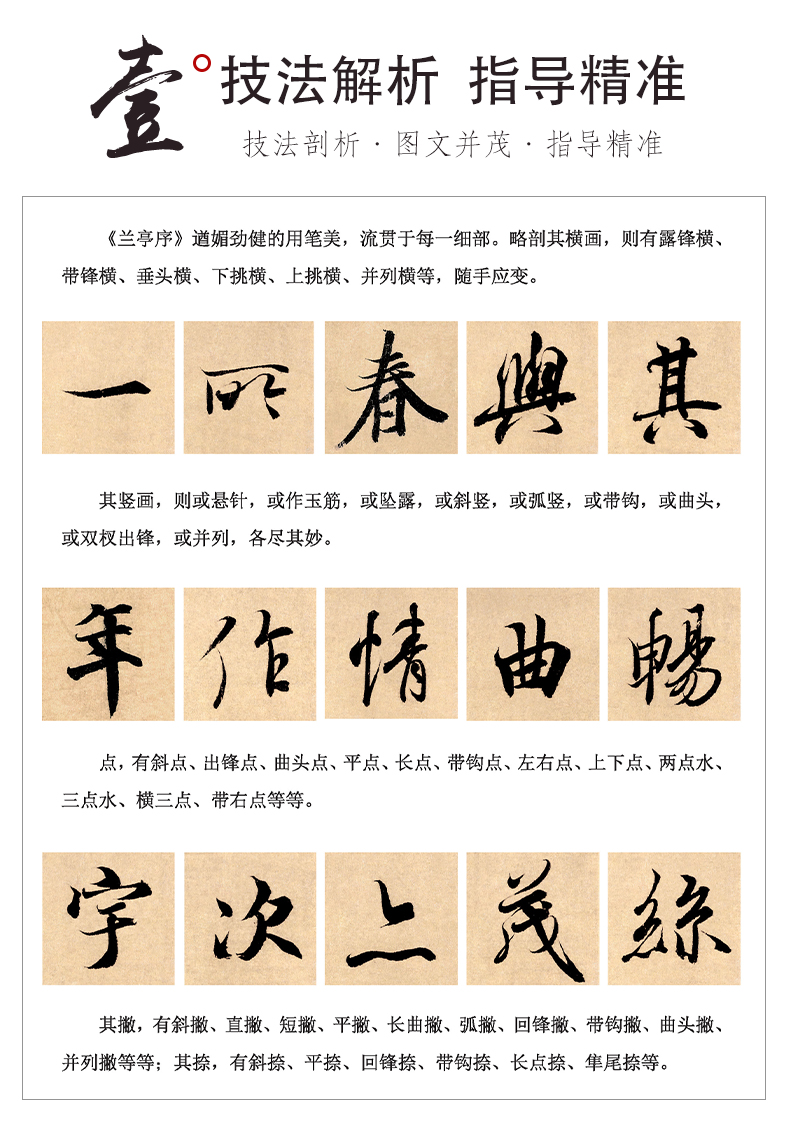 壹
技法解析 指导精准
技法剖析·图文并茂·指导精准
《兰亭序》遒媚劲健的用笔美，流贯于每一细部。略剖其横画，则有露锋横、
带锋横、垂头横、下挑横、上挑横、并列横等，随手应变。
一 所 春 與 其
其竖画，则或悬针，或作玉筋，或坠露，或斜竖，或弧竖，或带钩，或曲头，
或双杈出锋，或并列，各尽其妙。
年 作 情 曲 暢
点，有斜点、出锋点、曲头点、平点、长点、带钩点、左右点、上下点、两点水、
三点水、横三点、带右点等等。
宇 次 上 茂 絲
其撇，有斜撇、直撇、短撇、平撇、长曲撇、弧撇、回锋撇、带钩撇、曲头撇、
并列撇等等；其捺，有斜捺、平捺、回锋捺、带钩捺、长点捺、隼尾捺等。